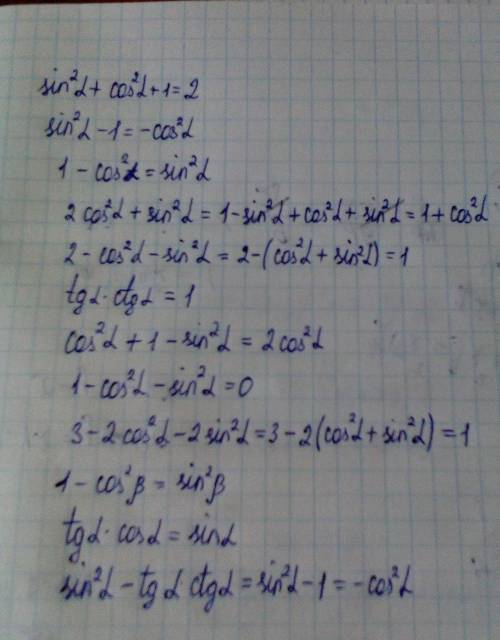 sin²α + cos²α + 1 = 2
sin²α - 1 = -cos²α
1 - cos²α = sin²α
2cos²α + sin²α = 1 - sin²α + cos²α + sin²α = 1 + cos²α
2 - cos²α - sin²α = 2 - (cos²α + sin²α) = 1
tgα · ctgα = 1
cos²α + 1 - sin²α = 2cos²α
1 - cos²α - sin²α = 0
3 - 2cos²α - 2sin²α = 3 - 2(cos²α + sin²α) = 1
1 - cos²β = sin²β
tgα · cosα = sinα
sin²α - tgα ctgα = sin²α - 1 = -cos²α